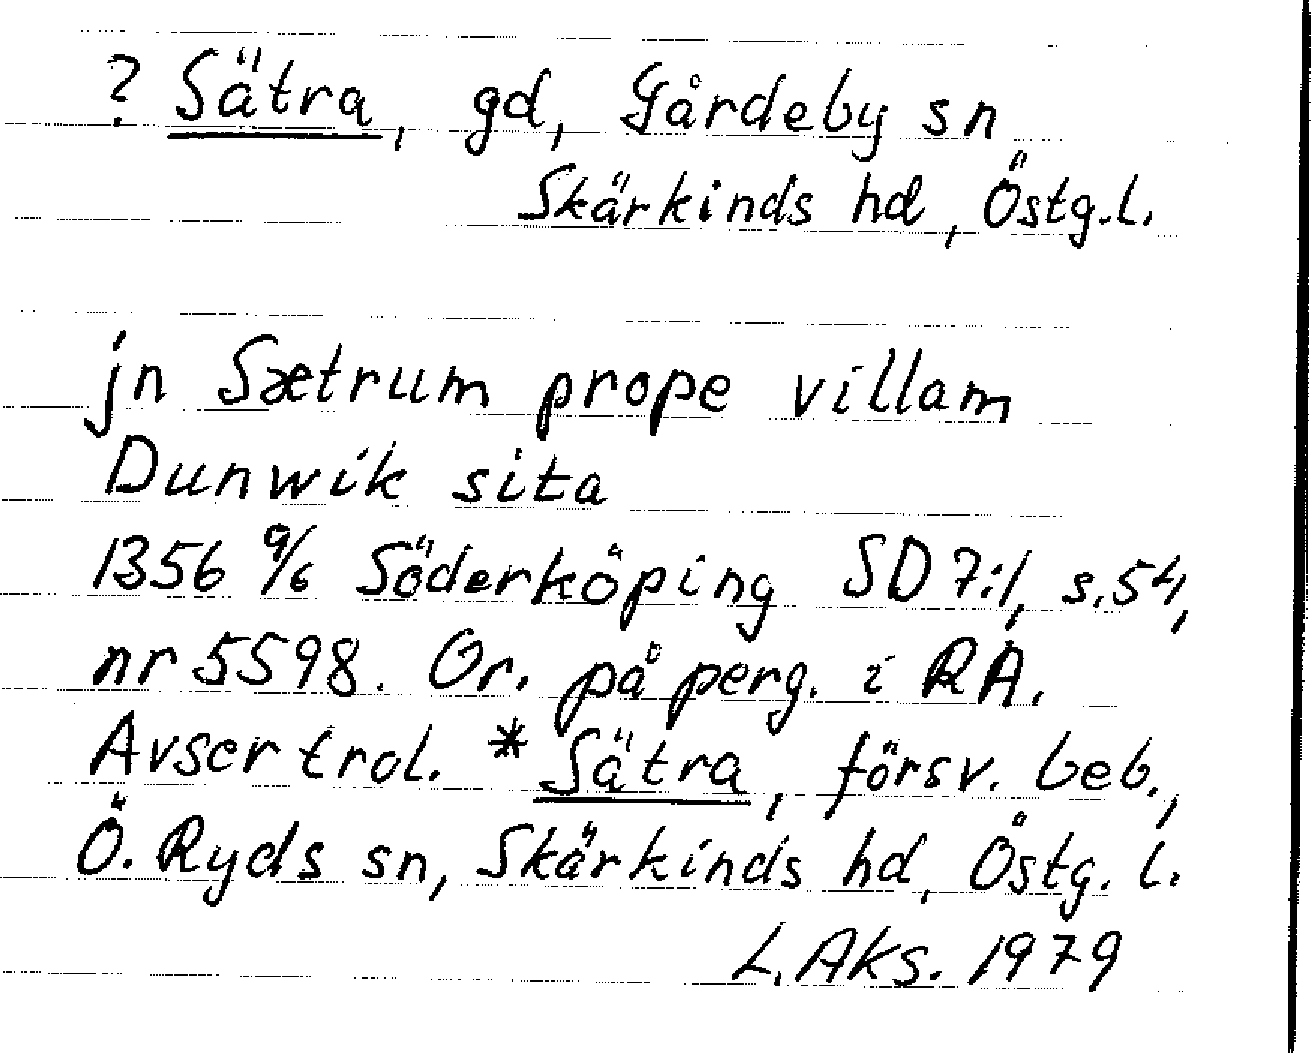 ? Sätra, gd, Gårdeby sn
Skärkinds hd, Östg.l.
jn Sætrum prope villam
Dunwik sita
1356 9/6 Söderköping SD 7:1, s.54,
nr 5598. Or. på perg. i RA.
Avser trol. * Sätra, försv. beb.,
Ö. Ryds sn, Skärkinds hd, Östg. l.
L. Aks. 1979